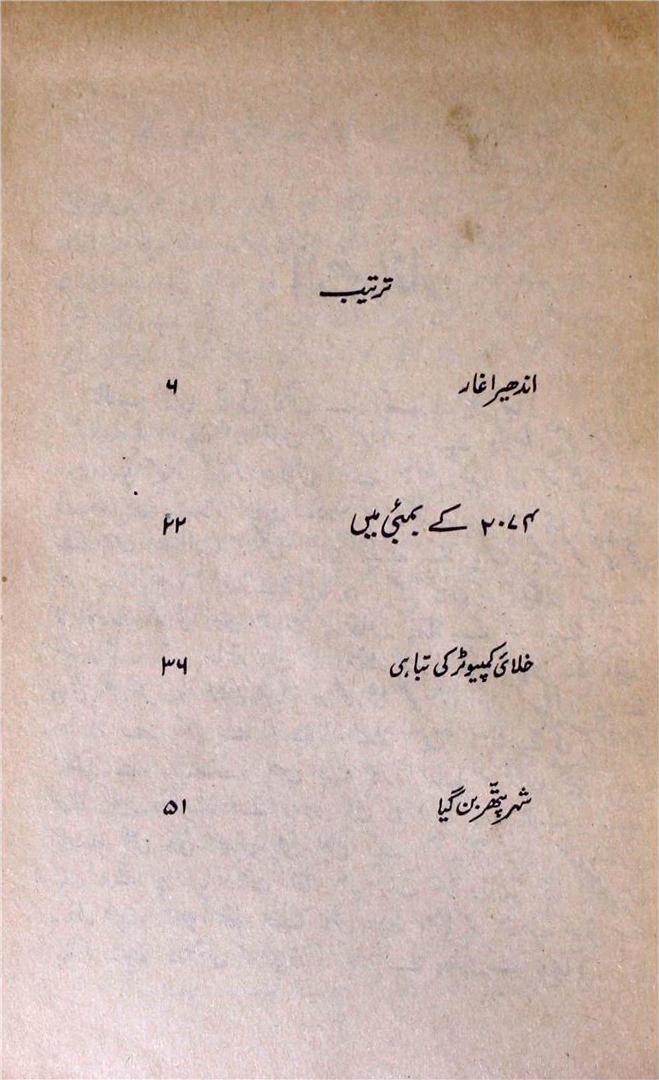 ترتیب
اندھیرا غار ۶
۲۰۷۴ کے بمبئی میں ۲۲
خلائی کمپیوٹر کی تباہی ۳۶
شہر پتھّر بن گیا ۵۱